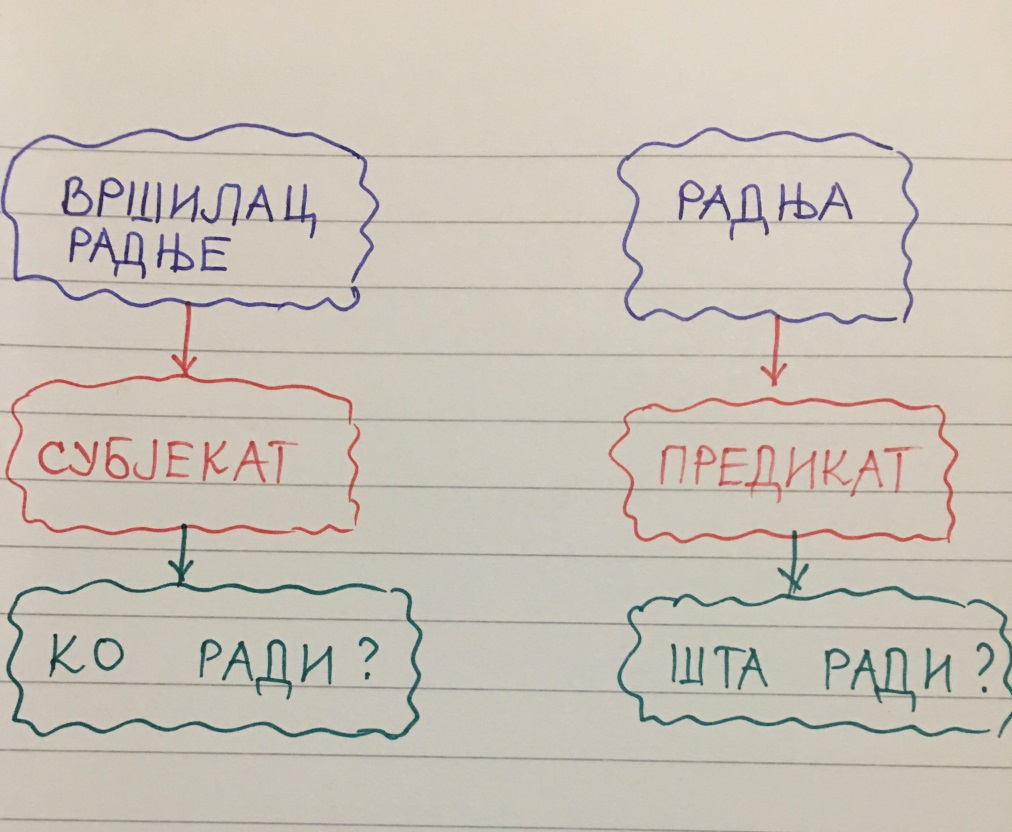 ВРШИЛАЦ
РАДЊЕ
СУБЈЕКАТ
КО РАДИ?
РАДЊА
ПРЕДИКАТ
ШТА РАДИ?